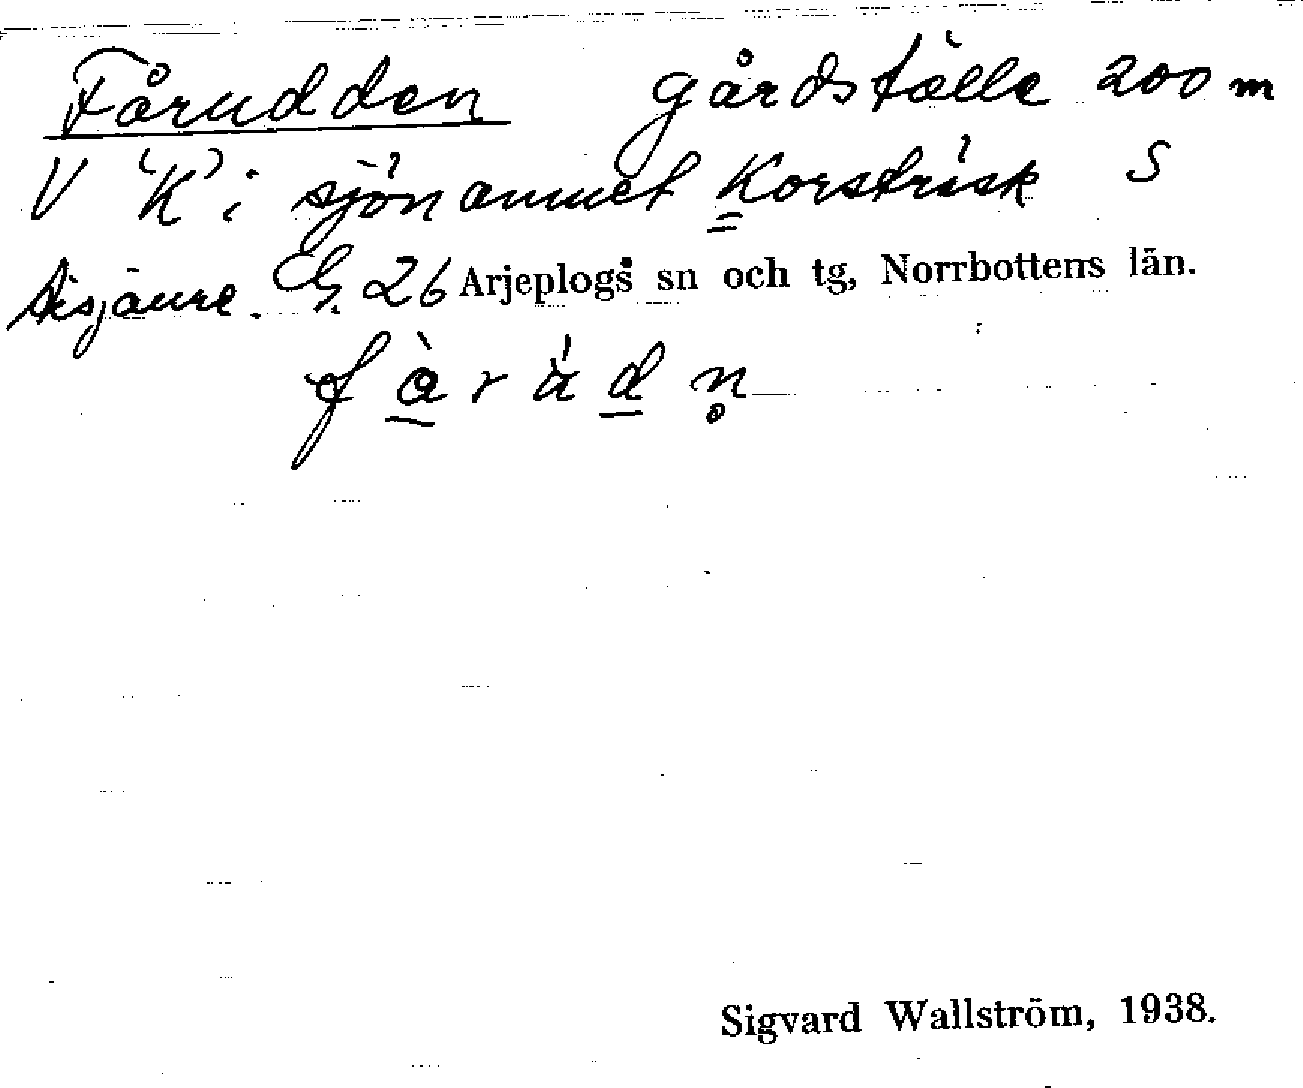 Fårudden gårdställe 200 m
V "K" i sjönamnet Korsträsk S
Aisjaure. G. 26 Arjeplogs sn och tg, Norrbottens län.
Sigvard Wallström, 1938.